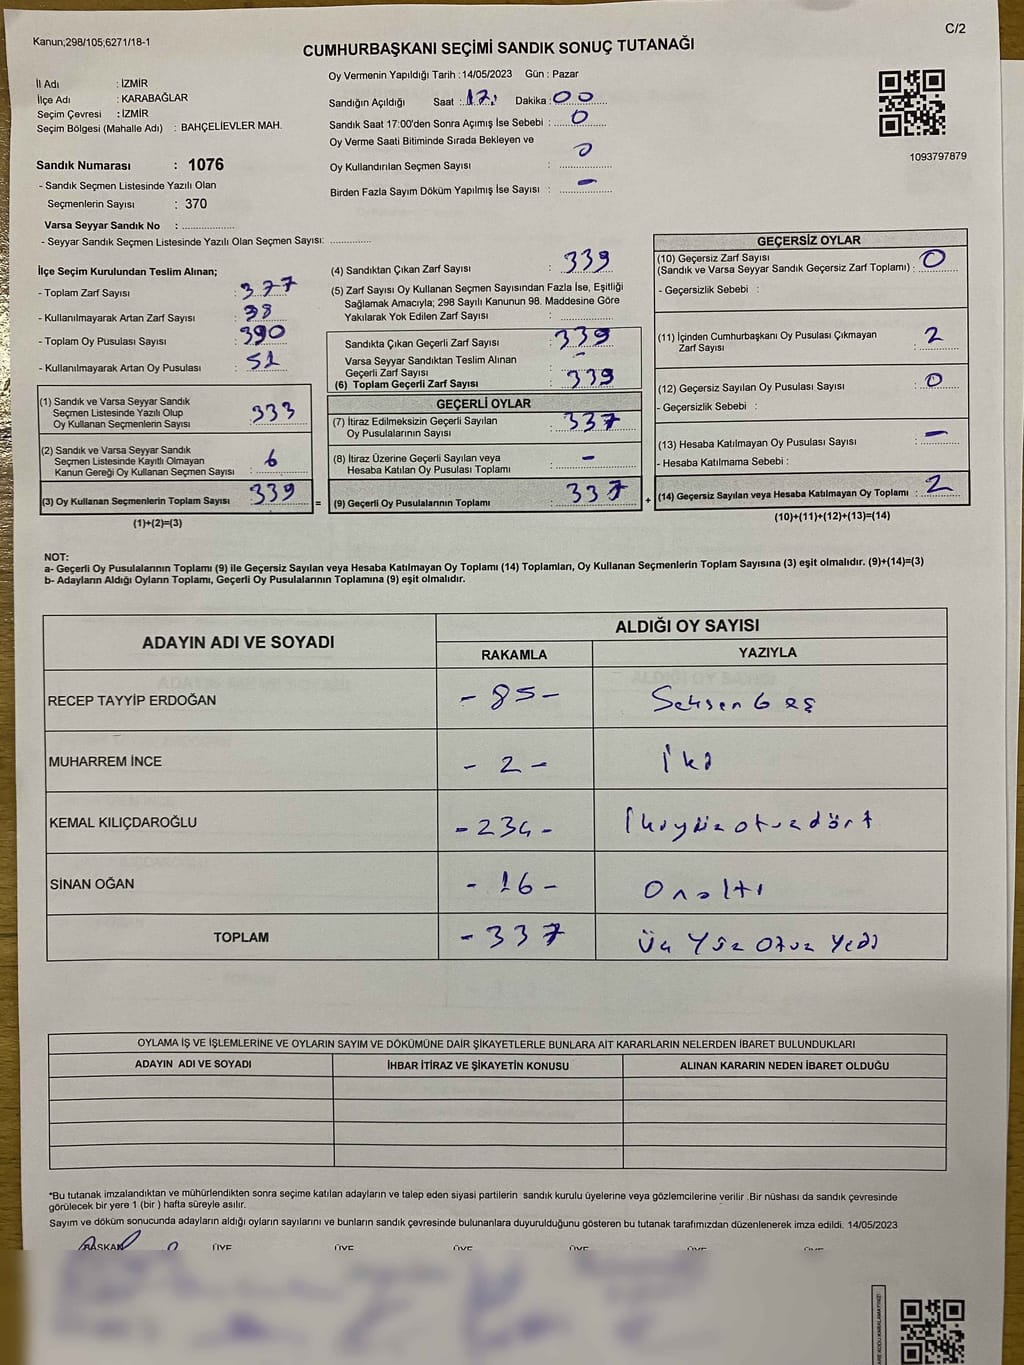 Kanun;298/105;6271/18-1
C/2
CUMHURBAŞKANI SEÇİMİ SANDIK SONUÇ TUTANAĞI
İl Adı : İZMİR
İlçe Adı : KARABAĞLAR
Seçim Çevresi : İZMİR
Seçim Bölgesi (Mahalle Adı) : BAHÇELİEVLER MAH.
Sandık Numarası : 1076
- Sandık Seçmen Listesinde Yazılı Olan
Seçmenlerin Sayısı : 370
Varsa Seyyar Sandık No : ....................
- Seyyar Sandık Seçmen Listesinde Yazılı Olan Seçmen Sayısı: ..............
Oy Vermenin Yapıldığı Tarih :14/05/2023 Gün : Pazar
Sandığın Açıldığı Saat : 17 Dakika : 00
Sandık Saat 17:00'den Sonra Açımış İse Sebebi : 0
Oy Verme Saati Bitiminde Sırada Bekleyen ve
Oy Kullandırılan Seçmen Sayısı : 0
Birden Fazla Sayım Döküm Yapılmış İse Sayısı : -
1093797879
İlçe Seçim Kurulundan Teslim Alınan;
- Toplam Zarf Sayısı : 377
- Kullanılmayarak Artan Zarf Sayısı : 38
- Toplam Oy Pusulası Sayısı : 390
- Kullanılmayarak Artan Oy Pusulası : 51
(1) Sandık ve Varsa Seyyar Sandık
Seçmen Listesinde Yazılı Olup
Oy Kullanan Seçmenlerin Sayısı : 333
(2) Sandık ve Varsa Seyyar Sandık
Seçmen Listesinde Kayıtlı Olmayan
Kanun Gereği Oy Kullanan Seçmen Sayısı : 6
(3) Oy Kullanan Seçmenlerin Toplam Sayısı : 339
(1)+(2)=(3)
(4) Sandıktan Çıkan Zarf Sayısı : 339
(5) Zarf Sayısı Oy Kullanan Seçmen Sayısından Fazla İse, Eşitliği
Sağlamak Amacıyla; 298 Sayılı Kanunun 98. Maddesine Göre
Yakılarak Yok Edilen Zarf Sayısı : ..............
Sandıkta Çıkan Geçerli Zarf Sayısı : 339
Varsa Seyyar Sandıktan Teslim Alınan
Geçerli Zarf Sayısı : -
(6) Toplam Geçerli Zarf Sayısı : 339
GEÇERLİ OYLAR
(7) İtiraz Edilmeksizin Geçerli Sayılan
Oy Pusulalarının Sayısı : 337
(8) İtiraz Üzerine Geçerli Sayılan veya
Hesaba Katılan Oy Pusulası Toplamı : -
= (9) Geçerli Oy Pusulalarının Toplamı : 337
GEÇERSİZ OYLAR
(10) Geçersiz Zarf Sayısı
(Sandık ve Varsa Seyyar Sandık Geçersiz Zarf Toplamı) : 0
- Geçersizlik Sebebi :
(11) İçinden Cumhurbaşkanı Oy Pusulası Çıkmayan
Zarf Sayısı : 2
(12) Geçersiz Sayılan Oy Pusulası Sayısı : 0
- Geçersizlik Sebebi :
(13) Hesaba Katılmayan Oy Pusulası Sayısı : -
- Hesaba Katılmama Sebebi :
+ (14) Geçersiz Sayılan veya Hesaba Katılmayan Oy Toplamı : 2
(10)+(11)+(12)+(13)=(14)
NOT:
a- Geçerli Oy Pusulalarının Toplamı (9) ile Geçersiz Sayılan veya Hesaba Katılmayan Oy Toplamı (14) Toplamları, Oy Kullanan Seçmenlerin Toplam Sayısına (3) eşit olmalıdır. (9)+(14)=(3)
b- Adayların Aldığı Oyların Toplamı, Geçerli Oy Pusulalarının Toplamına (9) eşit olmalıdır.
ADAYIN ADI VE SOYADI
ALDIĞI OY SAYISI
RAKAMLA YAZIYLA
RECEP TAYYİP ERDOĞAN - 85 - Seksen beş
MUHARREM İNCE - 2 - İki
KEMAL KILIÇDAROĞLU - 234 - İkiyüz otuzdört
SİNAN OĞAN - 16 - Onaltı
TOPLAM - 337 Üç Yüz Otuz Yedi
OYLAMA İŞ VE İŞLEMLERİNE VE OYLARIN SAYIM VE DÖKÜMÜNE DAİR ŞİKAYETLERLE BUNLARA AİT KARARLARIN NELERDEN İBARET BULUNDUKLARI
ADAYIN ADI VE SOYADI İHBAR İTİRAZ VE ŞİKAYETİN KONUSU ALINAN KARARIN NEDEN İBARET OLDUĞU
*Bu tutanak imzalandıktan ve mühürlendikten sonra seçime katılan adayların ve talep eden siyasi partilerin sandık kurulu üyelerine veya gözlemcilerine verilir .Bir nüshası da sandık çevresinde
görülecek bir yere 1 (bir ) hafta süreyle asılır.
Sayım ve döküm sonucunda adayların aldığı oyların sayılarını ve bunların sandık çevresinde bulunanlara duyurulduğunu gösteren bu tutanak tarafımızdan düzenlenerek imza edildi. 14/05/2023
BAŞKAN ÜYE ÜYE ÜYE ÜYE ÜYE ÜYE